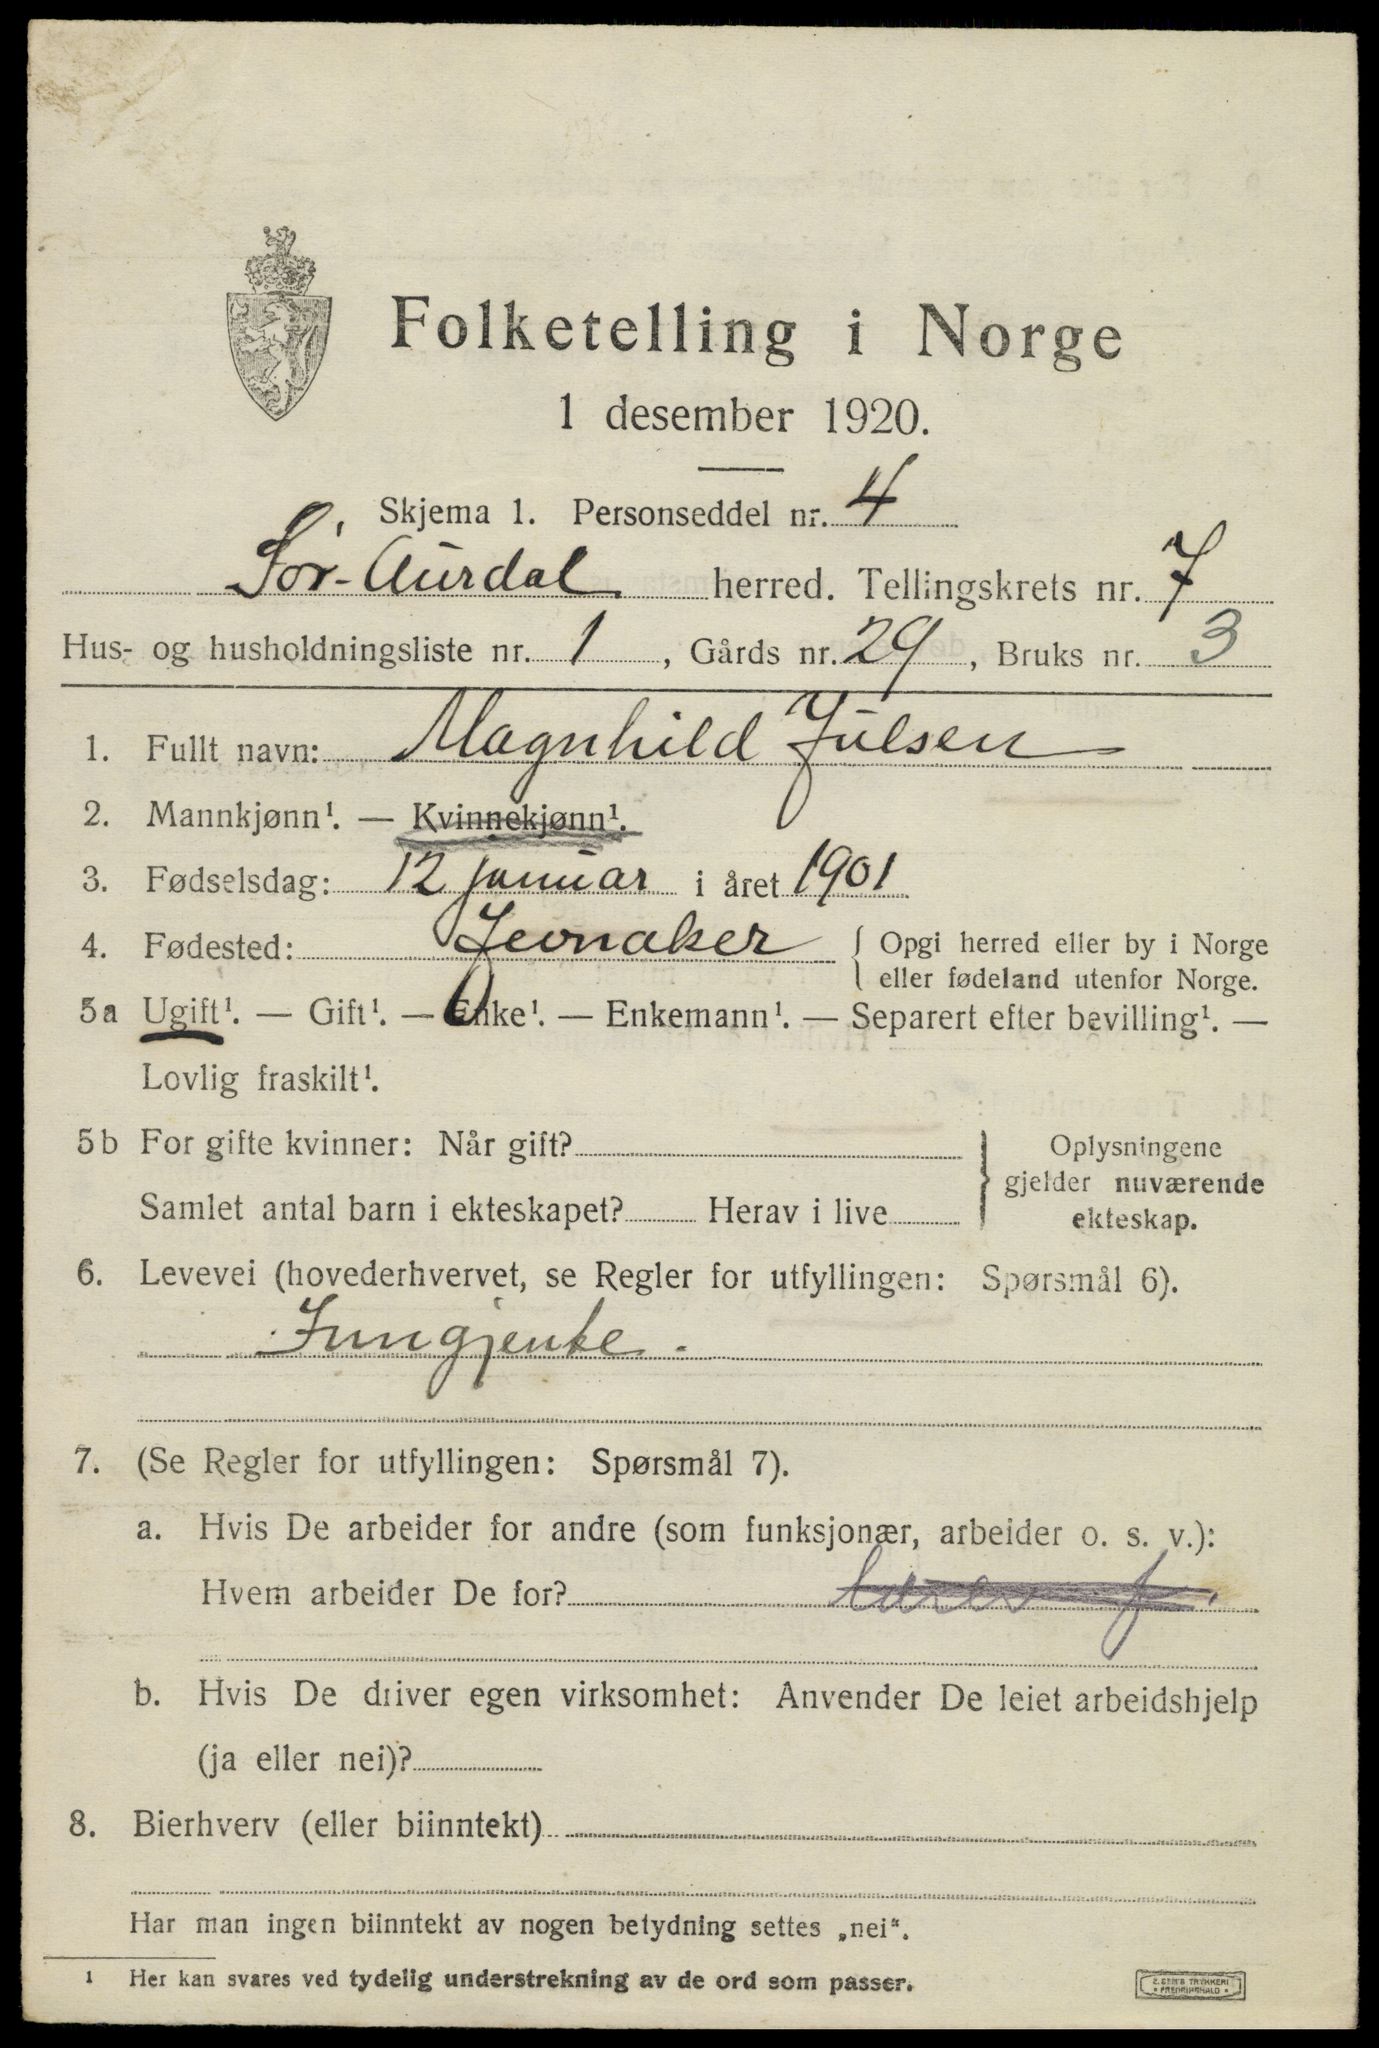 Folketelling i Norge
1 desember 1920.
Skjema 1. Personseddel nr. 4
Sør-Aurdal herred. Tellingskrets nr. 7
Hus- og husholdningsliste nr. 1, Gårds nr. 29, Bruks nr. 3
1. Fullt navn: Magnhild Julsen
2. Mannkjønn¹. — Kvinnekjønn¹.
3. Fødselsdag: 12 januar i året 1901
4. Fødested: Jevnaker { Opgi herred eller by i Norge
eller fødeland utenfor Norge.
5a Ugift¹. — Gift¹. — Enke¹. — Enkemann¹. — Separert efter bevilling¹. —
Lovlig fraskilt¹.
5b For gifte kvinner: Når gift?
Samlet antal barn i ekteskapet? Herav i live
Oplysningene
gjelder nuværende
ekteskap.
6. Levevei (hovederhvervet, se Regler for utfyllingen: Spørsmål 6).
Jungjente.
7. (Se Regler for utfyllingen: Spørsmål 7).
a. Hvis De arbeider for andre (som funksjonær, arbeider o. s. v.):
Hvem arbeider De for?
b. Hvis De driver egen virksomhet: Anvender De leiet arbeidshjelp
(ja eller nei)?
8. Bierhverv (eller biinntekt)
Har man ingen biinntekt av nogen betydning settes „nei“.
1 Her kan svares ved tydelig understrekning av de ord som passer.